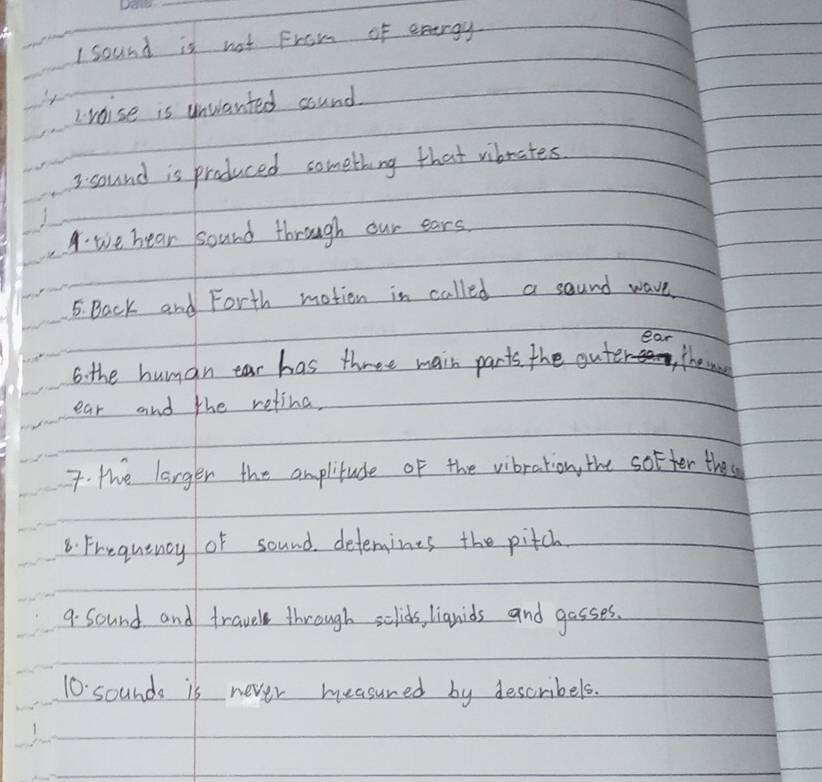 1 Sound is not From of energy
2. noise is unwanted sound.
3. sound is produced something that vibrates.
4. we hear sound through our ears.
5. Back and Forth motion in called a sound wave.
ear
6. the human ear has three main parts. the outer, the
ear and the retina.
7. the larger the amplitude of the vibration, the softer the
8. Frequency of sound. detemines the pitch.
9. Sound and travels through solids, liquids and gasses.
10. sounds is never measured by describels.